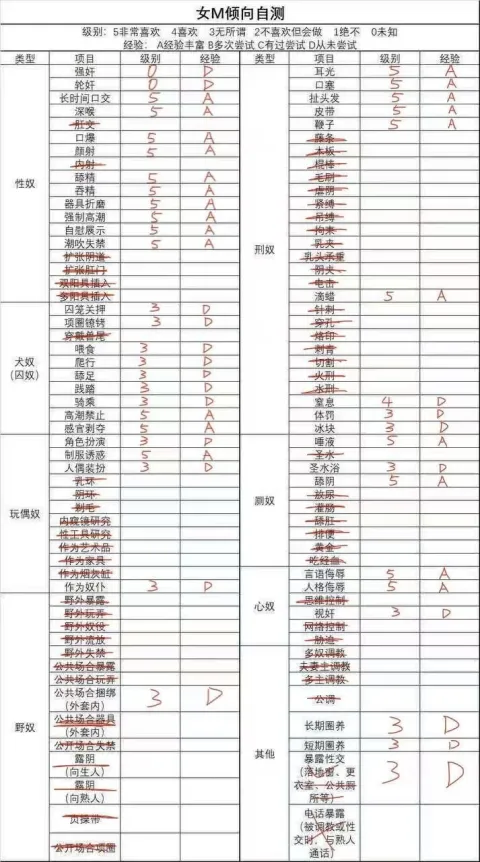 女M倾向自测
级别：5非常喜欢 4喜欢 3无所谓 2不喜欢但会做 1绝不 0未知
经验： A经验丰富 B多次尝试 C有过尝试 D从未尝试
类型 项目 级别 经验
性奴
强奸 0 D
轮奸 0 D
长时间口交 5 A
深喉 5 A
肛交
口爆 5 A
颜射 5 A
内射
舔精 5 A
吞精 5 A
器具折磨 5 A
强制高潮 5 A
自慰展示 5 A
潮吹失禁 5 A
扩张阴道
扩张肛门
双阳具插入
多阳具插入
犬奴
（囚奴）
囚笼关押 3 D
项圈镣铐 3 D
穿戴兽尾
喂食 3 D
爬行 3 D
舔足 3 D
践踏 3 D
骑乘 3 D
高潮禁止 5 A
感官剥夺 5 A
玩偶奴
角色扮演 3 D
制服诱惑 5 A
人偶装扮 3 D
乳环
阴环
剃毛
内窥镜研究
性工具研究
作为艺术品
作为家具
作为烟灰缸
作为奴仆 3 D
野奴
野外暴露
野外玩弄
野外奴役
野外流放
野外失禁
公共场合暴露
公共场合玩弄
公共场合捆绑
（外套内） 3 D
公共场合器具
（外套内）
公开场合失禁
露阴
（向生人）
露阴
（向熟人）
贞操带
公开场合项圈
类型 项目 级别 经验
刑奴
耳光 5 A
口塞 5 A
扯头发 5 A
皮带 5 A
鞭子 5 A
藤条
木板
棍棒
毛刷
虐阴
紧缚
吊缚
拘束
乳夹
乳头承重
阴夹
电击
滴蜡 5 A
针刺
穿孔
烙印
刺青
切割
火刑
水刑
窒息 4 D
体罚 3 D
冰块 3 D
厕奴
唾液 5 A
圣水
圣水浴 3 D
舔阴 5 A
放尿
灌肠
舔肛
排便
黄金
吃经血
心奴
言语侮辱 5 A
人格侮辱 5 A
思维控制
视奸 3 D
网络控制
胁迫
其他
多奴调教
夫妻主调教
多主调教
公调
长期圈养 3 D
短期圈养 3 D
暴露性交
（落地窗、更
衣室、公共厕
所等） 3 D
电话暴露
（被调教或性
交时，与熟人
通话）